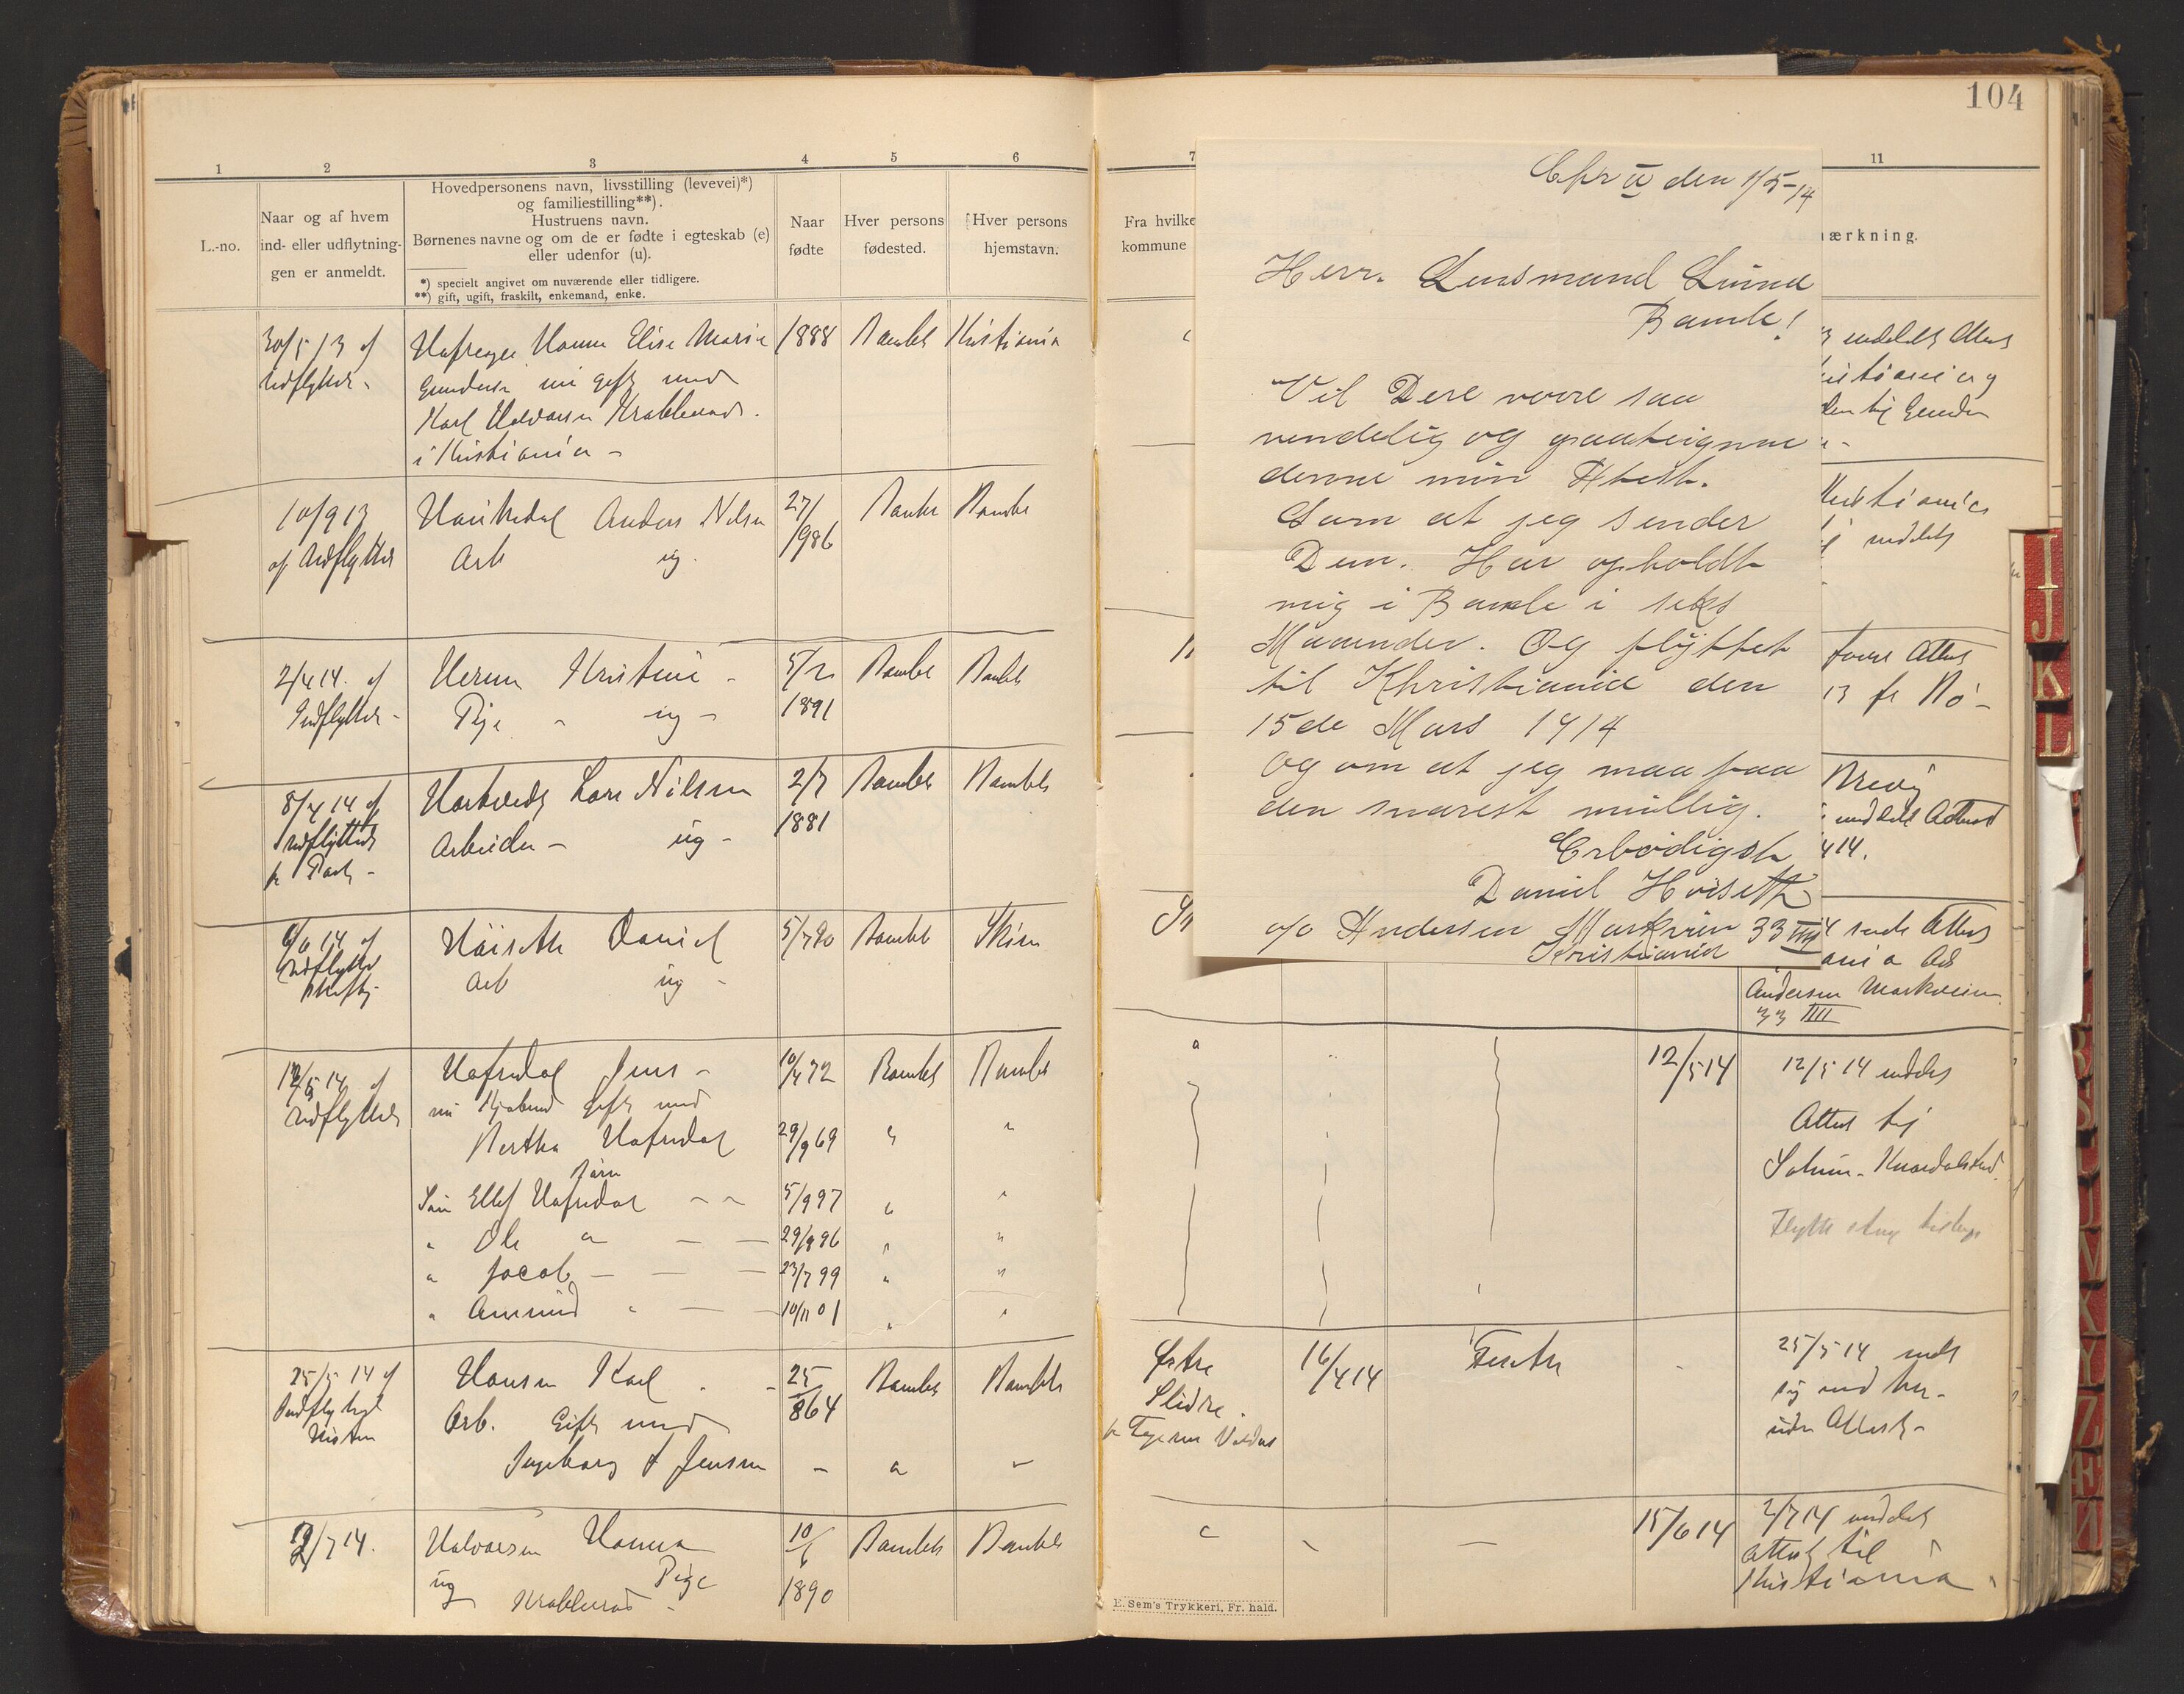 104
1 2 3 4 5 6
L.-no.
Naar og af hvem
ind- eller udflytnin-
gen er anmeldt.
Hovedpersonens navn, livsstilling (levevei)*)
og familiestilling**).
Hustruens navn.
Børnenes navne og om de er fødte i egteskab (e)
eller udenfor (u).
*) specielt angivet om nuværende eller tidligere.
**) gift, ugift, fraskilt, enkemand, enke.
Naar
fødte
Hver persons
fødested.
Hver persons
hjemstavn.
30/5 13 af
Udflytter
Hafreager Hanna Elise Marie
Gundersen nu gift med
Karl Halvorsen Krabberød
i Kristiania
1888 Bamble Kristiania
10/9 13
af Udflytter
Haukedal Anders Nilsen
Arb ug.
27/
1986
Bamble Bamble
2/4 14. af
Indflytter
Herum Kristine
Pige ug
5/2
1891
Bamble Bamble
8/4 14 af
Udflytter
pr Post
Hartvedt Lars Nilsen
Arbeider ug
2/7
1881
Bamble Bamble
14 af
Udflytter
Skriftlig
Häiseth Daniel
Arb ug
5/7 90 Bamble Skien
12/5 14 af
Udflytter
Hafredal Jens
nu gift med
Bertha Hafredal
Børn
Søn Ellef Hafredal
" Ole "
" Jacob
" Amund "
10/4 72 Bamble Bamble
29/9 69 " "
5/9 97 " "
29/8 96 " "
23/7 99 " "
10/11 01 " "
25/5 14 af
Indflytter
Hansen Karl
Arb. Gift med
Ingeborg f Jensen
25
864
Bamble Bamble
2/7 14.
Halvorsen Hanna
ug Pige
Krabberød
10/6
1890
Bamble Bamble
7 11
Fra hvilke
kommune
ærkning.
Chr IV den 1/5-14
Herr. Lensmand Lund
Bamle!
Vil Dere være saa
vendelig og paateigne
denne min Atest.
Som at jeg sender
Dem. Har opholdt
mig i Bamle i seks
Maander. Og flyttet
til Khristiania den
15de Mars 1914
Og om at jeg maa faa
den snarest muillig.
Erbødigst
Daniel Hviseth
c/o Andersen Markvein 33 IIII
Kristiania
meddelt Attest
istiania og
Kristiania
meddelt
Attest
13 fr
Brevig
meddelt Attest
4 14.
4 sendt Attest
ania Ad
Andersen Markveien
33 IIII
12/5 14
12/5 14 meddelt
Attest til
Solum - Knardalstrand
Flytte
Østre
Slidre
pr Fagernes Valdres
16/4 14
25/5 14 meldt
sig ind her
uden Attest
15/6 14
2/7 14 meddelt
Attest til
Kristiania
E. Sem's Trykkeri, Fr. hald.
I
J
K
L